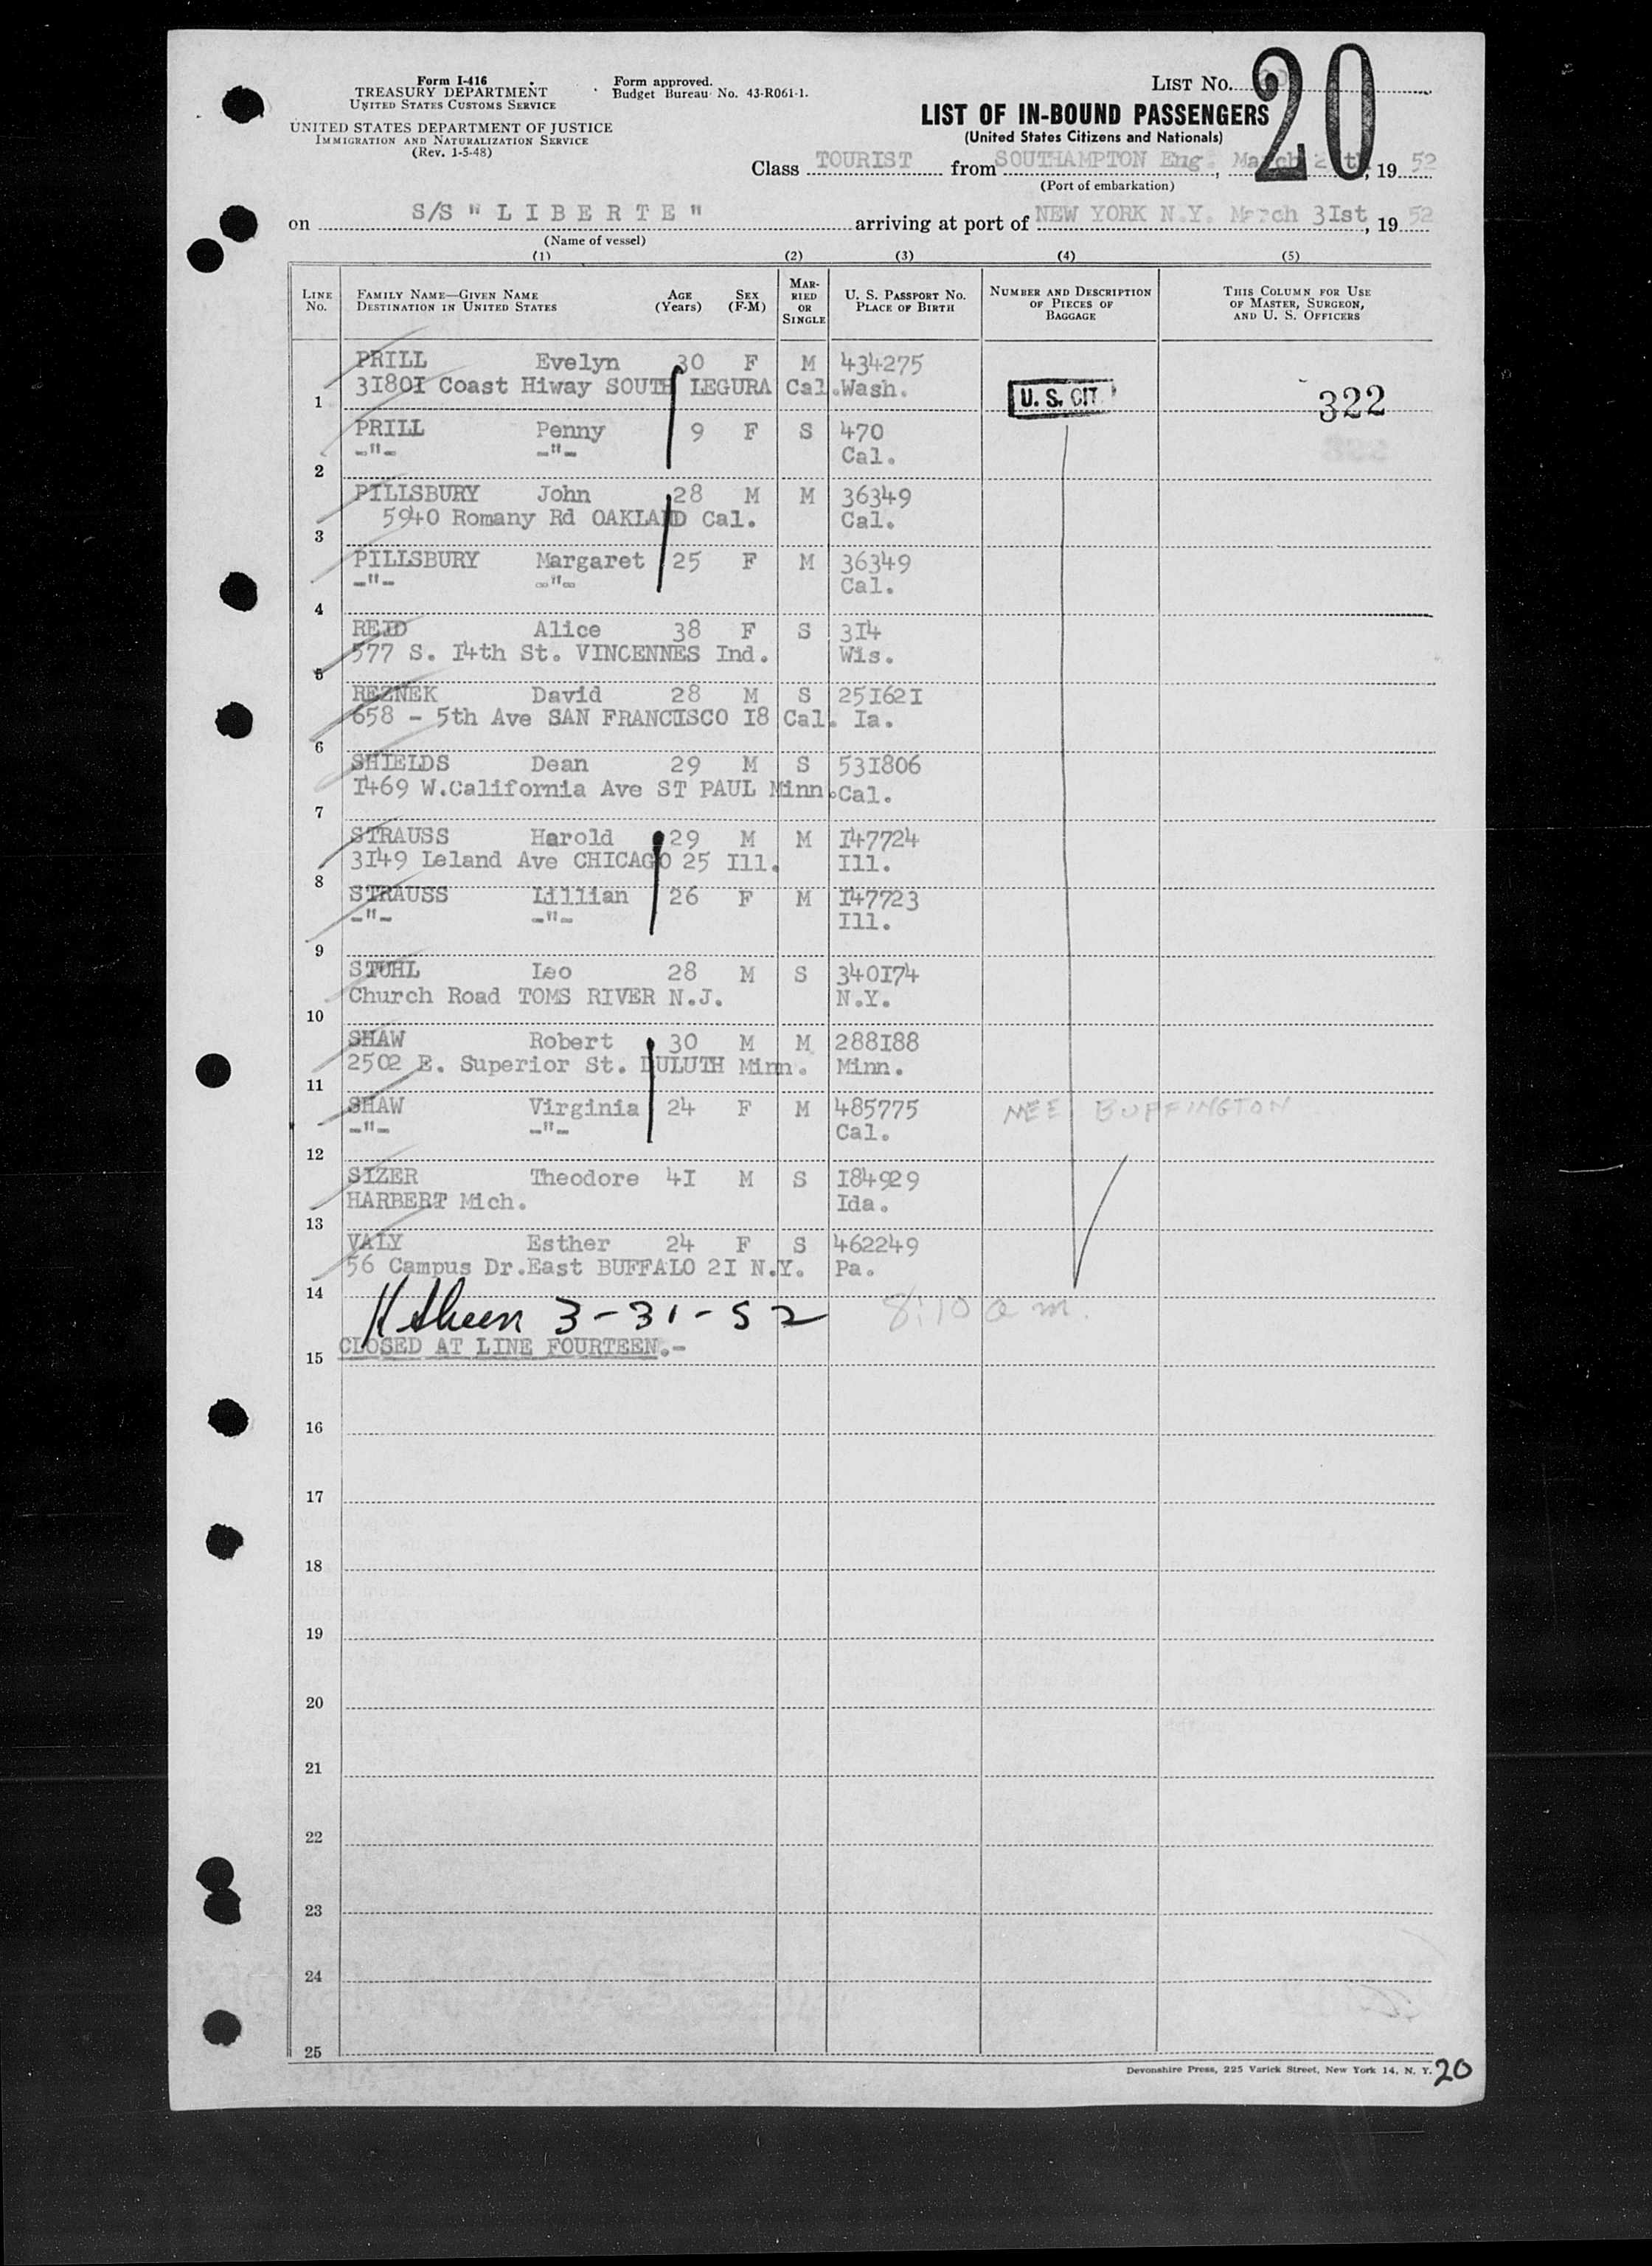 Form I-416
TREASURY DEPARTMENT
UNITED STATES CUSTOMS SERVICE
UNITED STATES DEPARTMENT OF JUSTICE
IMMIGRATION AND NATURALIZATION SERVICE
(Rev. 1-5-48)
Form approved.
Budget Bureau No. 43-R061-1.
LIST No. 20
LIST OF IN-BOUND PASSENGERS
(United States Citizens and Nationals)
Class TOURIST from SOUTHAMPTON Eng., March , 19 52
(Port of embarkation)
on S/S " L I B E R T E " arriving at port of NEW YORK N.Y. March 3Ist, 19 52
(Name of vessel)
(1) (2) (3) (4) (5)
LINE No. FAMILY NAME—GIVEN NAME DESTINATION IN UNITED STATES AGE (Years) SEX (F-M) MARRIED OR SINGLE U. S. PASSPORT NO. PLACE OF BIRTH NUMBER AND DESCRIPTION OF PIECES OF BAGGAGE THIS COLUMN FOR USE OF MASTER, SURGEON, AND U. S. OFFICERS
PRILL Evelyn 30 F M 434275
3I80I Coast Hiway SOUTH LEGURA Cal.Wash.
1 U. S. CIT 322
PRILL Penny 9 F S 470
-"- -"- Cal.
2
PILLSBURY John 28 M M 36349
5940 Romany Rd OAKLAND Cal. Cal.
3
PILLSBURY Margaret 25 F M 36349
-"- -"- Cal.
4
REID Alice 38 F S 3I4
577 S. I4th St. VINCENNES Ind. Wis.
5
REZNEK David 28 M S 25I62I
658 - 5th Ave SAN FRANCISCO I8 Cal. Ia.
6
SHIELDS Dean 29 M S 53I806
I469 W.California Ave ST PAUL Minn.Cal.
7
STRAUSS Harold 29 M M I47724
3I49 Leland Ave CHICAGO 25 Ill. Ill.
8
STRAUSS Lillian 26 F M I47723
-"- -"- Ill.
9
STUHL Leo 28 M S 340I74
Church Road TOMS RIVER N.J. N.Y.
10
SHAW Robert 30 M M 288I88
2502 E. Superior St. DULUTH Minn. Minn.
11
SHAW Virginia 24 F M 485775 NEE BUFFINGTON
-"- -"- Cal.
12
SIZER Theodore 4I M S I84929
HARBERT Mich. Ida.
13
VALY Esther 24 F S 462249
56 Campus Dr.East BUFFALO 2I N.Y. Pa.
14
3-31-52 8:10 a m.
CLOSED AT LINE FOURTEEN.-
15
16
17
18
19
20
21
22
23
24
25
Devonshire Press, 225 Varick Street, New York 14, N. Y. 20